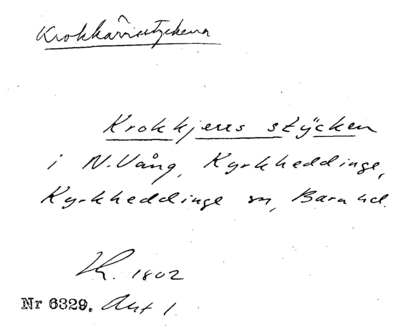 Krokkärrsstyckena
Krokkjerrs stÿcken
i N. Vång, Kyrkheddinge,
Kyrkheddinge sn, Bara hd.
Lh. 1802
Nr 6329. Akt 1.